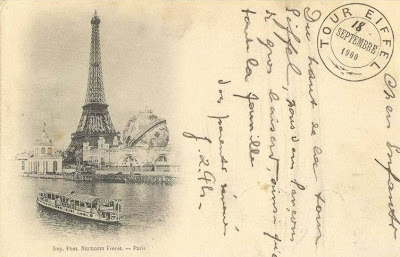 TOUR EIFFEL
18
SEPTEMBRE
1900
Chers Enfants
Du haut de la tour
Eiffel, nous vous lançons
de gros baisers ainsi que
toute la famille
Vos parents
Imp. Phot. NEURDEIN Frères. — Paris